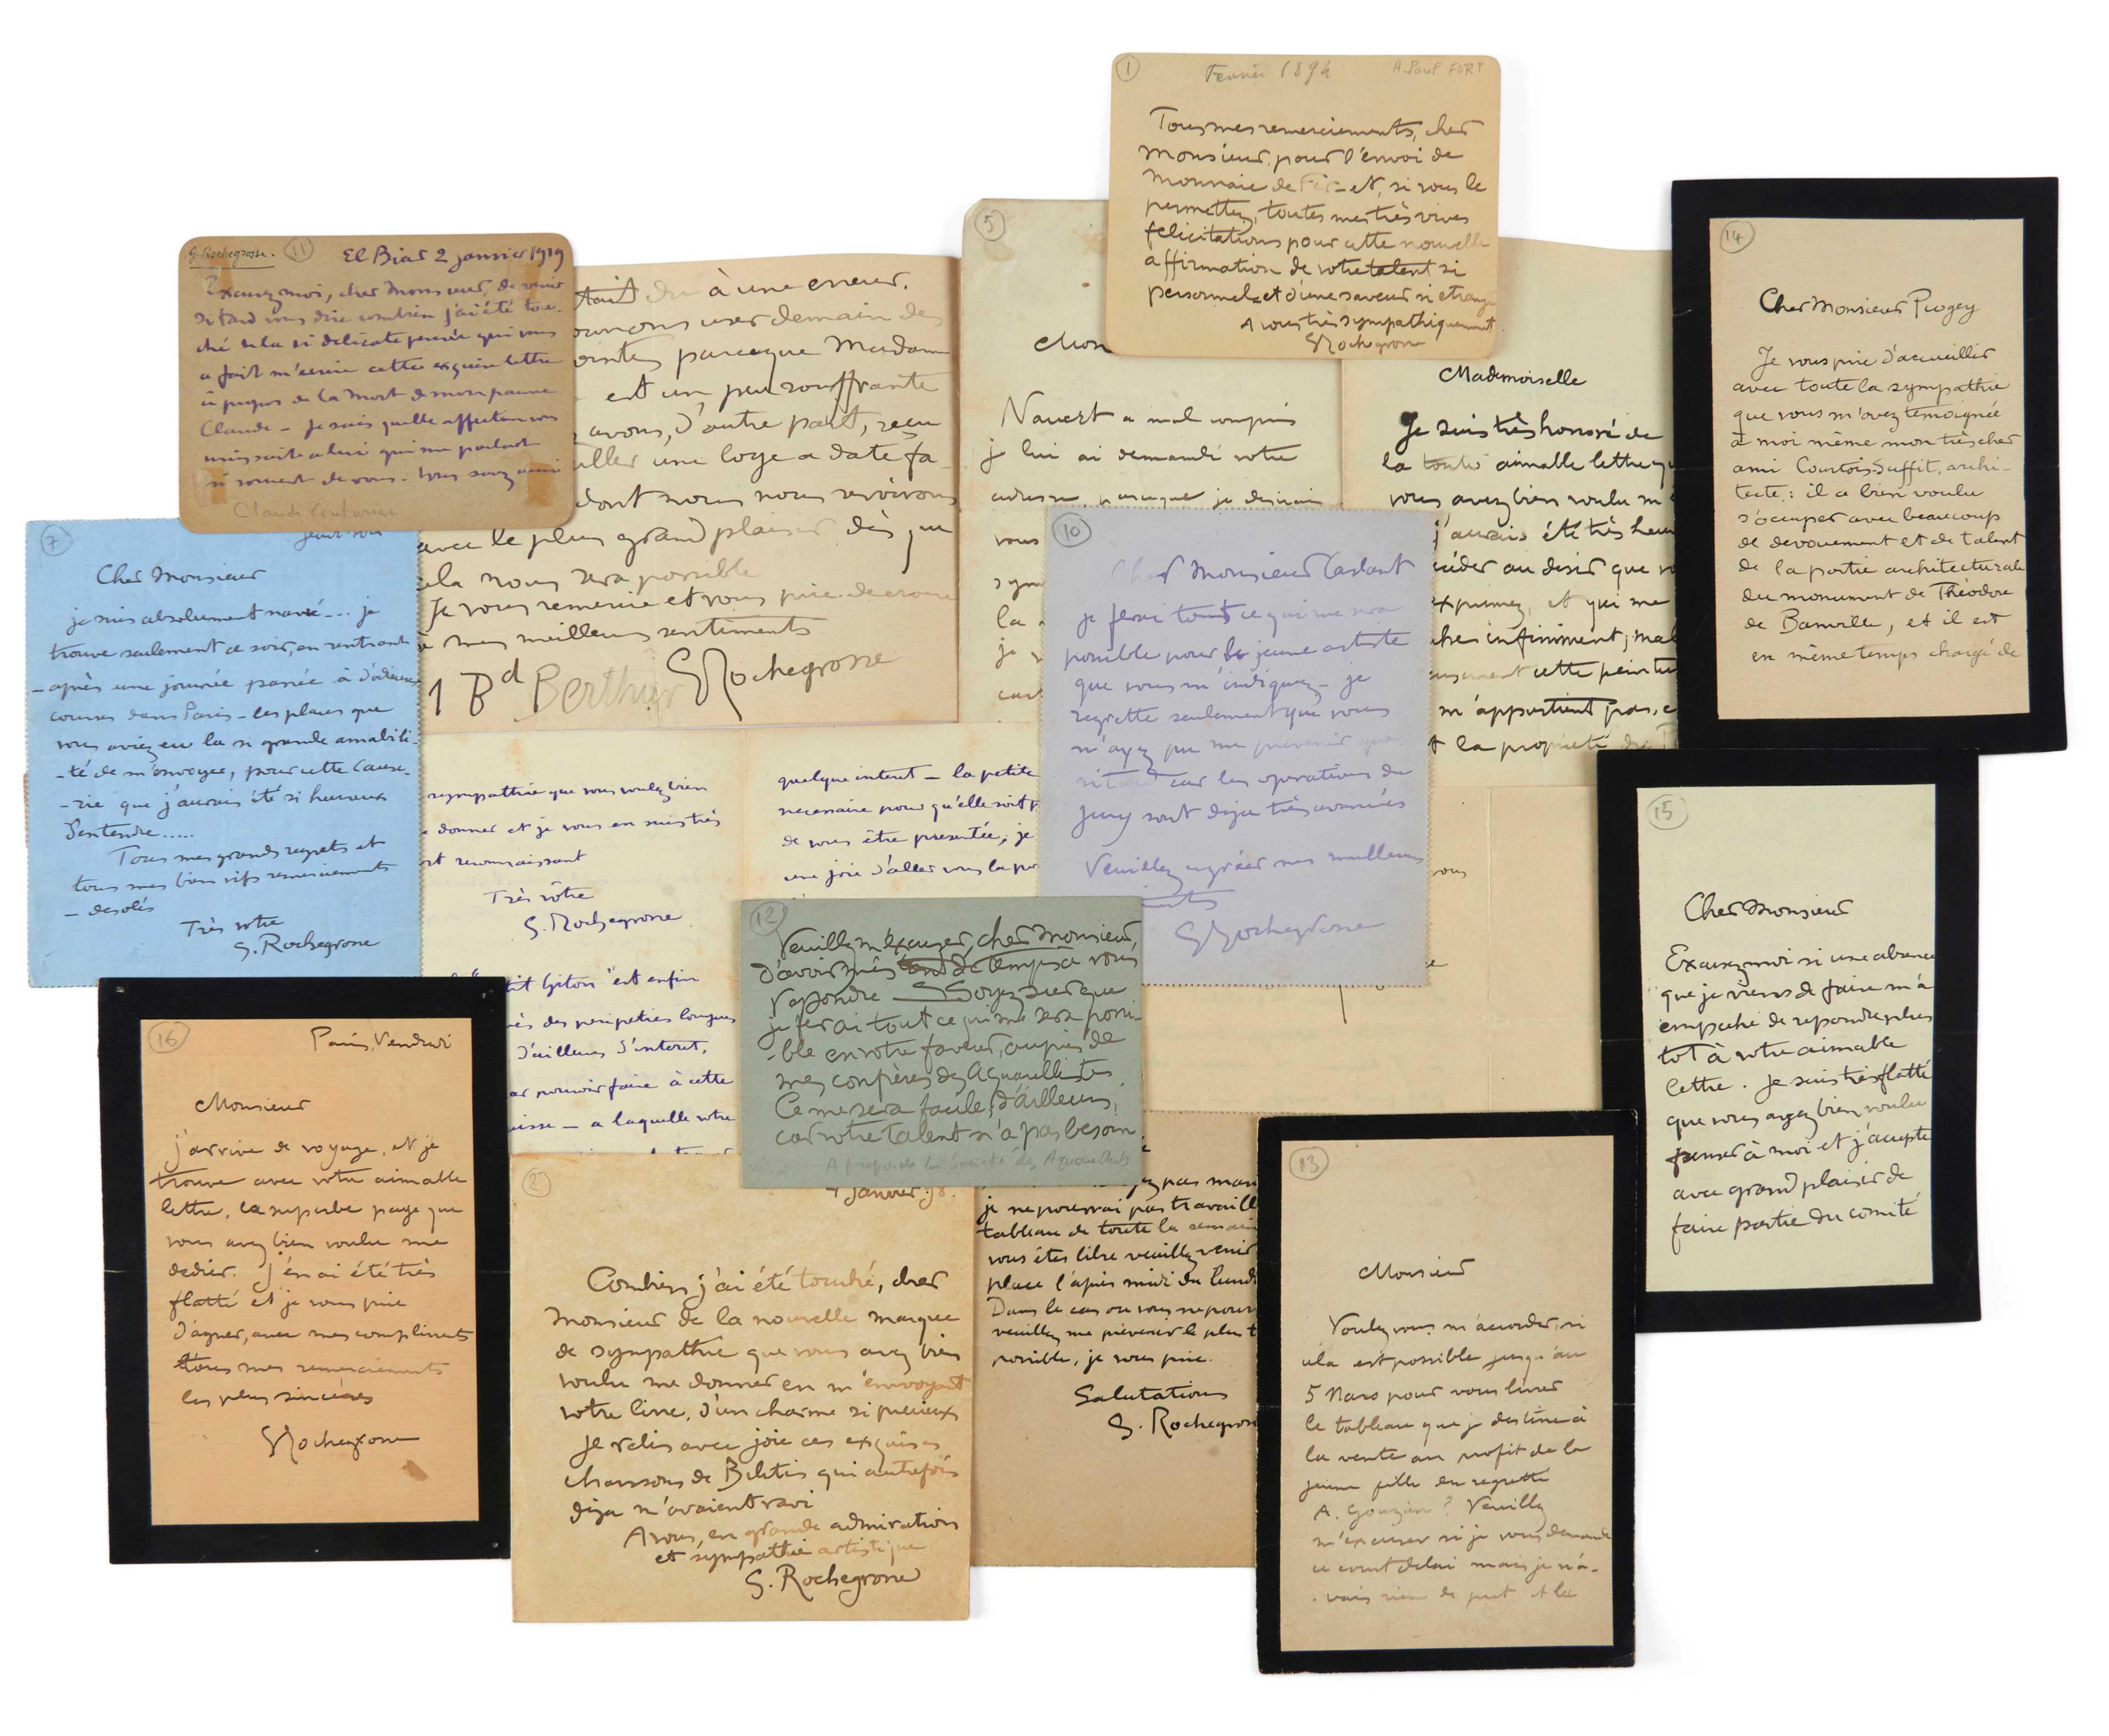 1
Fevrier 1894
A Paul FORT
Tous mes remerciements, cher
Monsieur, pour l'envoi de
Monnaie de Fer - et, si vous le
permettez, toutes mes très vives
félicitations pour cette nouvelle
affirmation de votre talent si
personnel et d'une saveur si étrange
A vous très sympathiquement
GRochegrosse
G. Rochegrosse.
11
El Biar 2 janvier 1919
Excusez moi, cher Monsieur, de venir
si tard vous dire combien j'ai été tou-
ché de la si délicate pensée qui vous
a fait m'écrire cette exquise lettre
à propos de la mort de mon pauvre
Claude - je sais quelle affection vous
unissait à lui qui me parlait
si souvent de vous -
Claude
tait dû à une erreur.
user demain des
parceque Madame
est un peu souffrante
avons, d'autre part, reçu
aller une loge a date fa-
dont nous nous servirons
avec le plus grand plaisir dès que
cela nous sera possible
Je vous remercie et vous prie de croire
à mes meilleurs sentiments
GRochegrosse
1 Bd Berthier
5
Mon
Navert a mal compris
je lui ai demandé votre
adresse, parceque je désirais
vous
sym
la
je
car
Mademoiselle
Je suis très honoré de
la toute aimable lettre qu
vous avez bien voulu m'é
j'aurais été très heu
céder au désir que vo
exprimez, et qui me
che infiniment; mal
usement cette peintu
m'appartient pas, e
t la propriété du
14
Cher Monsieur Pugey
Je vous prie d'accueillir
avec toute la sympathie
que vous m'avez témoignée
à moi même mon très cher
ami Courtois-Suffit, archi-
tecte : il a bien voulu
s'occuper avec beaucoup
de dévouement et de talent
de la partie architecturale
du monument de Théodore
de Banville, et il est
en même temps chargé de
7
jeudi soir
Cher Monsieur
je suis absolument navré... je
trouve seulement ce soir, en rentrant
- après une journée passée à d'odieuses
courses dans Paris - les places que
vous aviez eu la si grande amabili-
-té de m'envoyer, pour cette Cause-
-rie que j'aurais été si heureux
d'entendre.....
Tous mes grands regrets et
tous mes bien vifs remerciements
- desolés
Très votre
G. Rochegrosse
10
Cher Monsieur Tardant
je ferai tout ce qui me sera
possible pour le jeune artiste
que vous m'indiquez - je
regrette seulement que vous
n'ayez pu me prévenir que
si tard car les opérations du
Jury sont déjà très avancées
Veuillez agréer mes meilleurs
GRochegrosse
sympathie que vous voulez bien
e donner et je vous en suis très
rt reconnaissant
Très vôtre
G. Rochegrosse
quelque interet - la petite
necessaire pour qu'elle soit
de vous être presentée; je
une joie d'aller vous la po
tit Giton" est enfin
ès des peripeties longues
d'ailleurs d'interet.
pouvoir faire à cette
uisse - a laquelle votre
vous
15
Cher Monsieur
Excusez moi si une absence
que je viens de faire m'a
empeché de repondre plus
tôt à votre aimable
lettre. Je suis très flatté
que vous ayez bien voulu
penser à moi et j'accepte
avec grand plaisir de
faire partie du comité
12
Veuillez m'excuser, cher Monsieur,
d'avoir mis tant de temps a vous
repondre Soyez sur que
je ferai tout ce qui me sera possi-
-ble en votre faveur, auprès de
mes confrères des Aquarellistes
Ce me sera facile, d'ailleurs,
car votre talent n'a pas besoin
A propos de la Société des Aquarellistes
16
Paris, Vendredi
Monsieur
j'arrive de voyage, et je
trouve avec votre aimable
lettre, la superbe page que
vous avez bien voulu me
dédier. J'en ai été très
flatté et je vous prie
d'agréer, avec mes compliments
tous mes remerciements
les plus sincères
GRochegrosse
2
4 Janvier 98.
Combien j'ai été touché, cher
Monsieur de la nouvelle marque
de sympathie que vous avez bien
voulu me donner en m'envoyant
votre livre, d'un charme si précieux
Je relis avec joie ces exquises
chansons de Bilitis qui autrefois
déja m'avaient ravi
A vous, en grande admiration
et sympathie artistique
G. Rochegrosse
pas
je ne pourrai pas travaill
tableau de toute la semain
vous êtes libre veuillez venir
place l'après midi du lundi
Dans le cas ou vous ne pourr
veuillez me prévenir le plus t
possible, je vous prie.
Salutations
G. Rochegross
13
Monsieur
Voulez vous m'accorder, si
cela est possible jusqu'au
5 Mars pour vous livrer
le tableau que je destine à
la vente au profit de la
jeune fille du regretté
A. Gouzien ? Veuillez
m'excuser si je vous demande
ce court délai mais je n'a-
vais rien de pret et la